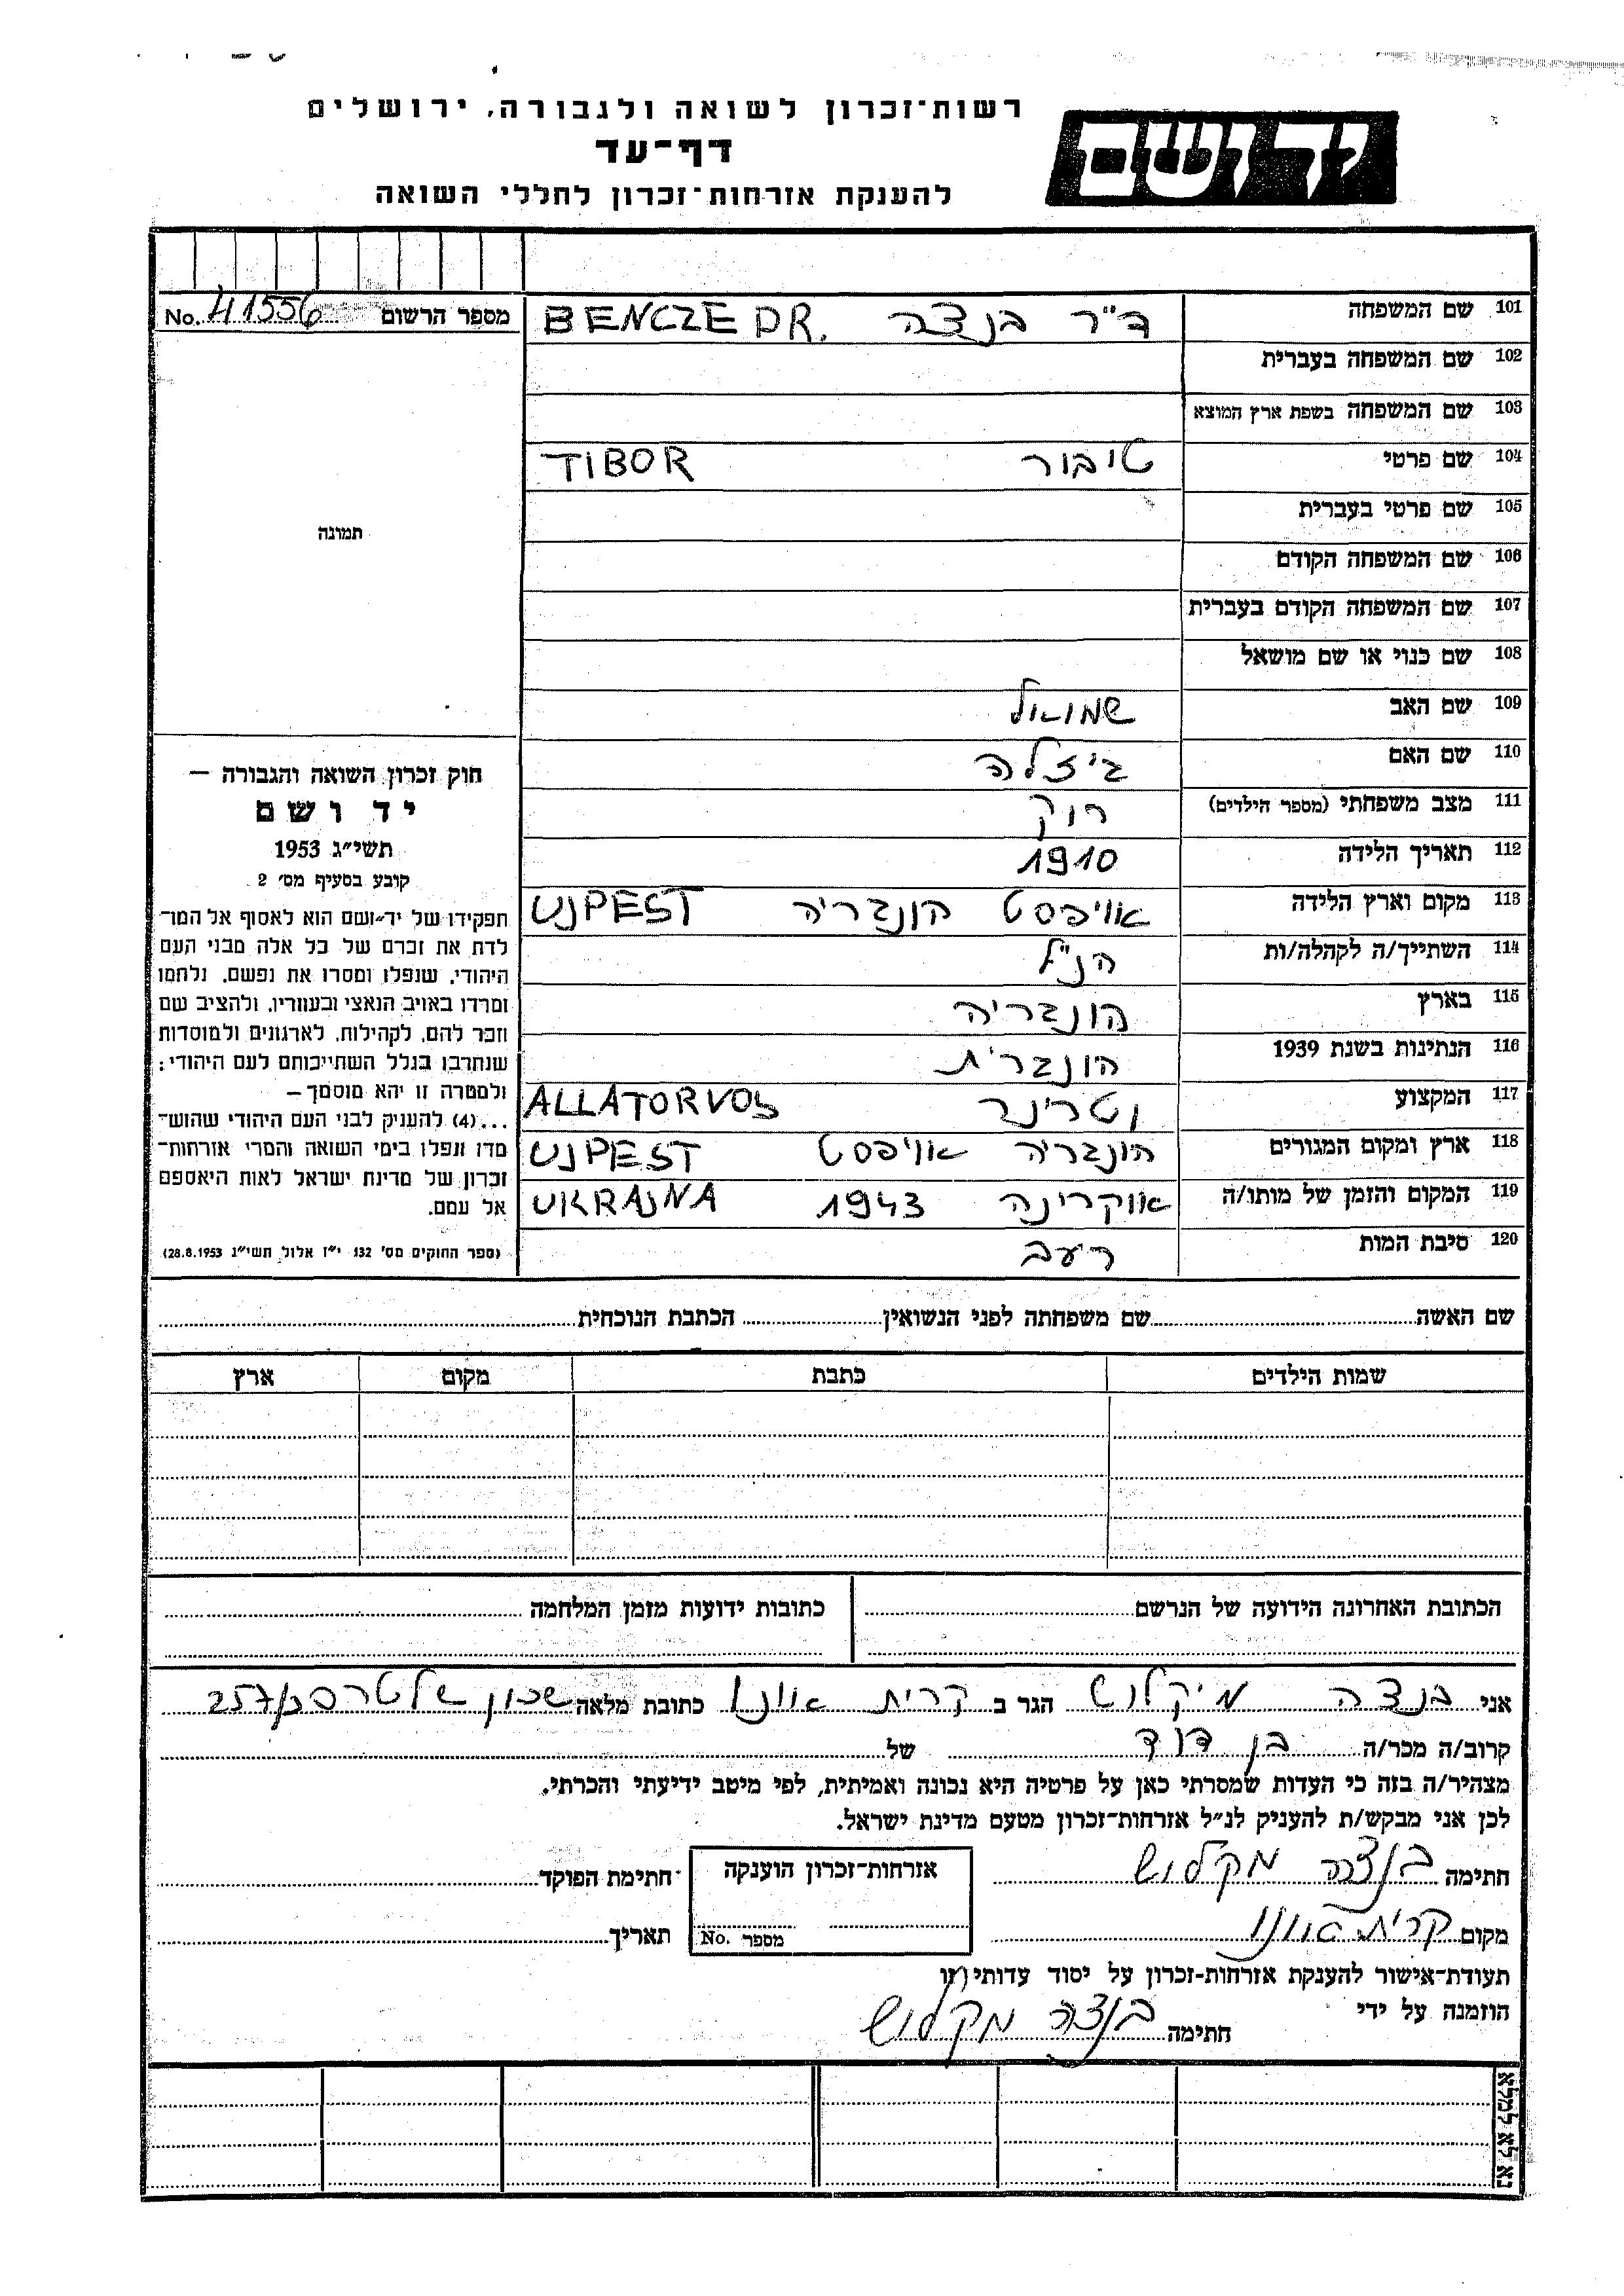 רשות-זכרון לשואה ולגבורה, ירושלים
יד ושם
דף-עד
להענקת אזרחות-זכרון לחללי השואה
מספר הרשום No. 41556
101 שם המשפחה ד"ר בנצה BENCZE DR.
102 שם המשפחה בעברית
103 שם המשפחה בשפת ארץ המוצא
104 שם פרטי טיבור TIBOR
105 שם פרטי בעברית
106 שם המשפחה הקודם
107 שם המשפחה הקודם בעברית
108 שם כנוי או שם מושאל
109 שם האב שמואל
110 שם האם גיזלה
111 מצב משפחתי (מספר הילדים) רוק
112 תאריך הלידה 1910
113 מקום וארץ הלידה אויפסט הונגריה UJPEST
114 השתייך/ה לקהלה/ות הנ"ל
115 בארץ הונגריה
116 הנתינות בשנת 1939 הונגרית
117 המקצוע וטרינר ALLATORVOS
118 ארץ ומקום המגורים הונגריה אויפסט UJPEST
119 המקום והזמן של מותו/ה אוקרינה 1943 UKRAJNA
120 סיבת המות רעב
תמונה
חוק זכרון השואה והגבורה —
יד ושם
תשי"ג 1953
קובע בסעיף מס' 2
תפקידו של יד-ושם הוא לאסוף אל המו־
לדת את זכרם של כל אלה מבני העם
היהודי, שנפלו ומסרו את נפשם, נלחמו
ומרדו באויב הנאצי ובעוזריו, ולהציב שם
וזכר להם, לקהילות, לארגונים ולמוסדות
שנחרבו בגלל השתייכותם לעם היהודי;
ולמטרה זו יהא מוסמך—
...(4) להעניק לבני העם היהודי שהוש־
מדו ונפלו בימי השואה והמרי אזרחות־
זכרון של מדינת ישראל לאות היאספם
אל עמם.
(ספר החוקים מס' 132 י"ז אלול תשי"ג 28.8.1953)
שם האשה שם משפחתה לפני הנשואין הכתבת הנוכחית
שמות הילדים כתבת מקום ארץ
הכתובת האחרונה הידועה של הנרשם כתובות ידועות מזמן המלחמה
אני בנצה מיקלוש הגר ב קרית אונו כתובת מלאה שכון שלטר 257/
קרוב/ה מכר/ה בן דוד של
מצהיר/ה בזה כי העדות שמסרתי כאן על פרטיה היא נכונה ואמיתית, לפי מיטב ידיעתי והכרתי.
לכן אני מבקש/ת להעניק לנ"ל אזרחות-זכרון מטעם מדינת ישראל.
חתימה בנצה מקלוש אזרחות-זכרון הוענקה חתימת הפוקד
מקום קרית אונו מספר No. תאריך
תעודת-אישור להענקת אזרחות-זכרון על יסוד עדותי זו
הוזמנה על ידי
חתימה בנצה מקלוש
נא לא למלא